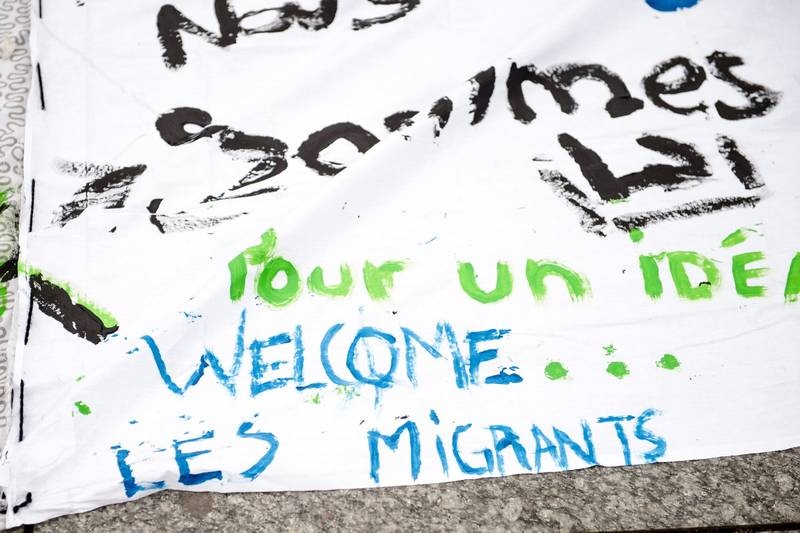 Nous
Sommes
Pour un IDÉA
WELCOME...
LES MiGRANTS